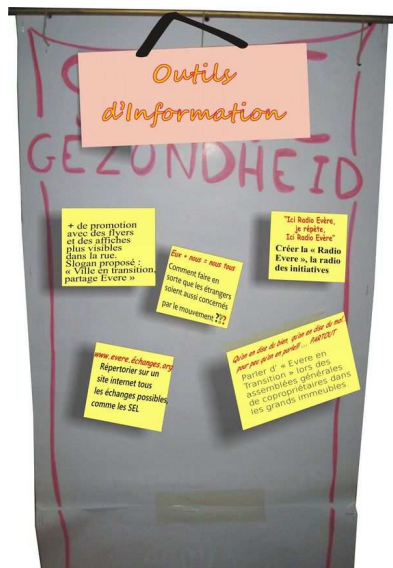 Outils
d'Information
GEZONDHEID
+ de promotion
avec des flyers
et des affiches
plus visibles
dans la rue.
Slogan proposé :
« Ville en transition,
partage Evere »
Eux + nous = nous tous
Comment faire en
sorte que les étrangers
soient aussi concernés
par le mouvement ???
"Ici Radio Evère,
je répète,
Ici Radio Evère"
Créer la « Radio
Evere », la radio
des initiatives
www.evere.échanges.org
Répertorier sur un
site internet tous
les échanges possibles,
comme les SEL
Qu'on en dise du bien, qu'on en dise du mal,
pour peu qu'on en parle!!! ... PARTOUT
Parler d' « Evere en
Transition » lors des
assemblées générales
de copropriétaires dans
les grands immeubles